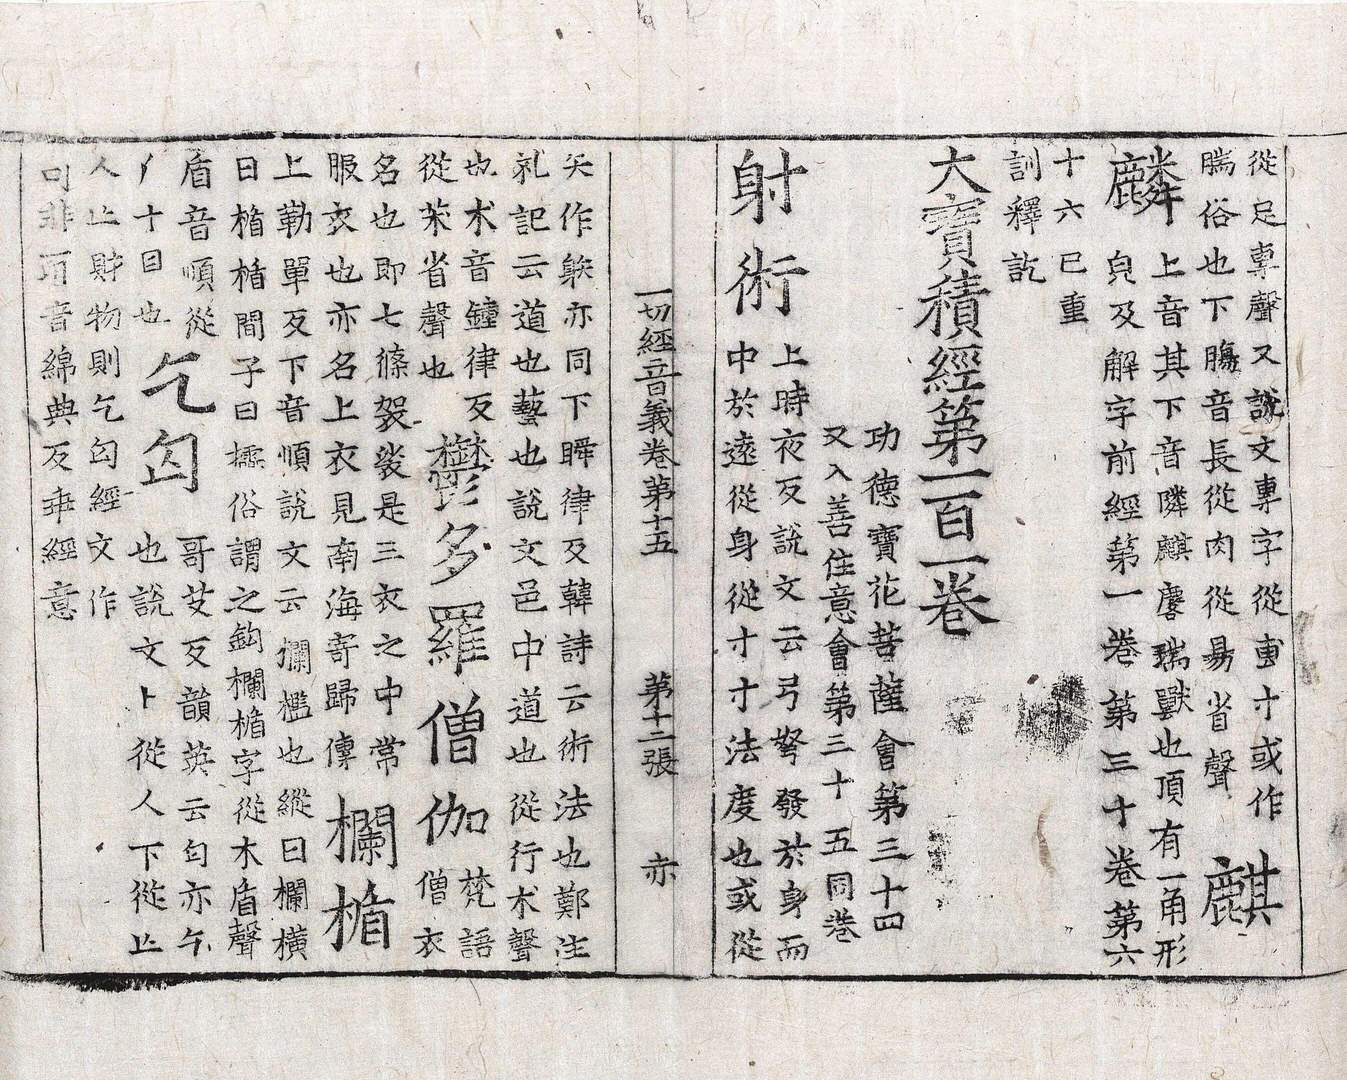 從足專聲又說文專字從叀寸或作
腨俗也下膓音長從肉從昜省聲
麒
麟
上音其下音隣麒麐瑞獸也頂有一角形
皃及解字前經第一卷第三十卷第六
十六已重
訓釋訖
大寶積經第一百一卷
功德寶花菩薩會第三十四
又入善住意會第三十五同卷
射術
上時夜反說文云弓弩發於身而
中於遠從身從寸寸法度也或從
一切經音義卷第十五 第十二張 亦
矢作䠶亦同下瞬律反韓詩云術法也鄭注
礼記云道也藝也說文邑中道也從行术聲
也术音鍾律反
從茮省聲也
鬱多羅僧伽
梵語
僧衣
名也即七條袈裟是三衣之中常
服衣也亦名上衣見南海寄歸傳
欄楯
上勒單反下音順說文云欄檻也縱曰欄橫
曰楯楯間子曰櫺俗謂之鉤欄楯字從木盾聲
盾音順從
十目也
乞匃
哥艾反韻英云匃亦乞
也說文卜從人下從亾
人亾財物則乞匃經文作
丐非丏音綿典反乖經意